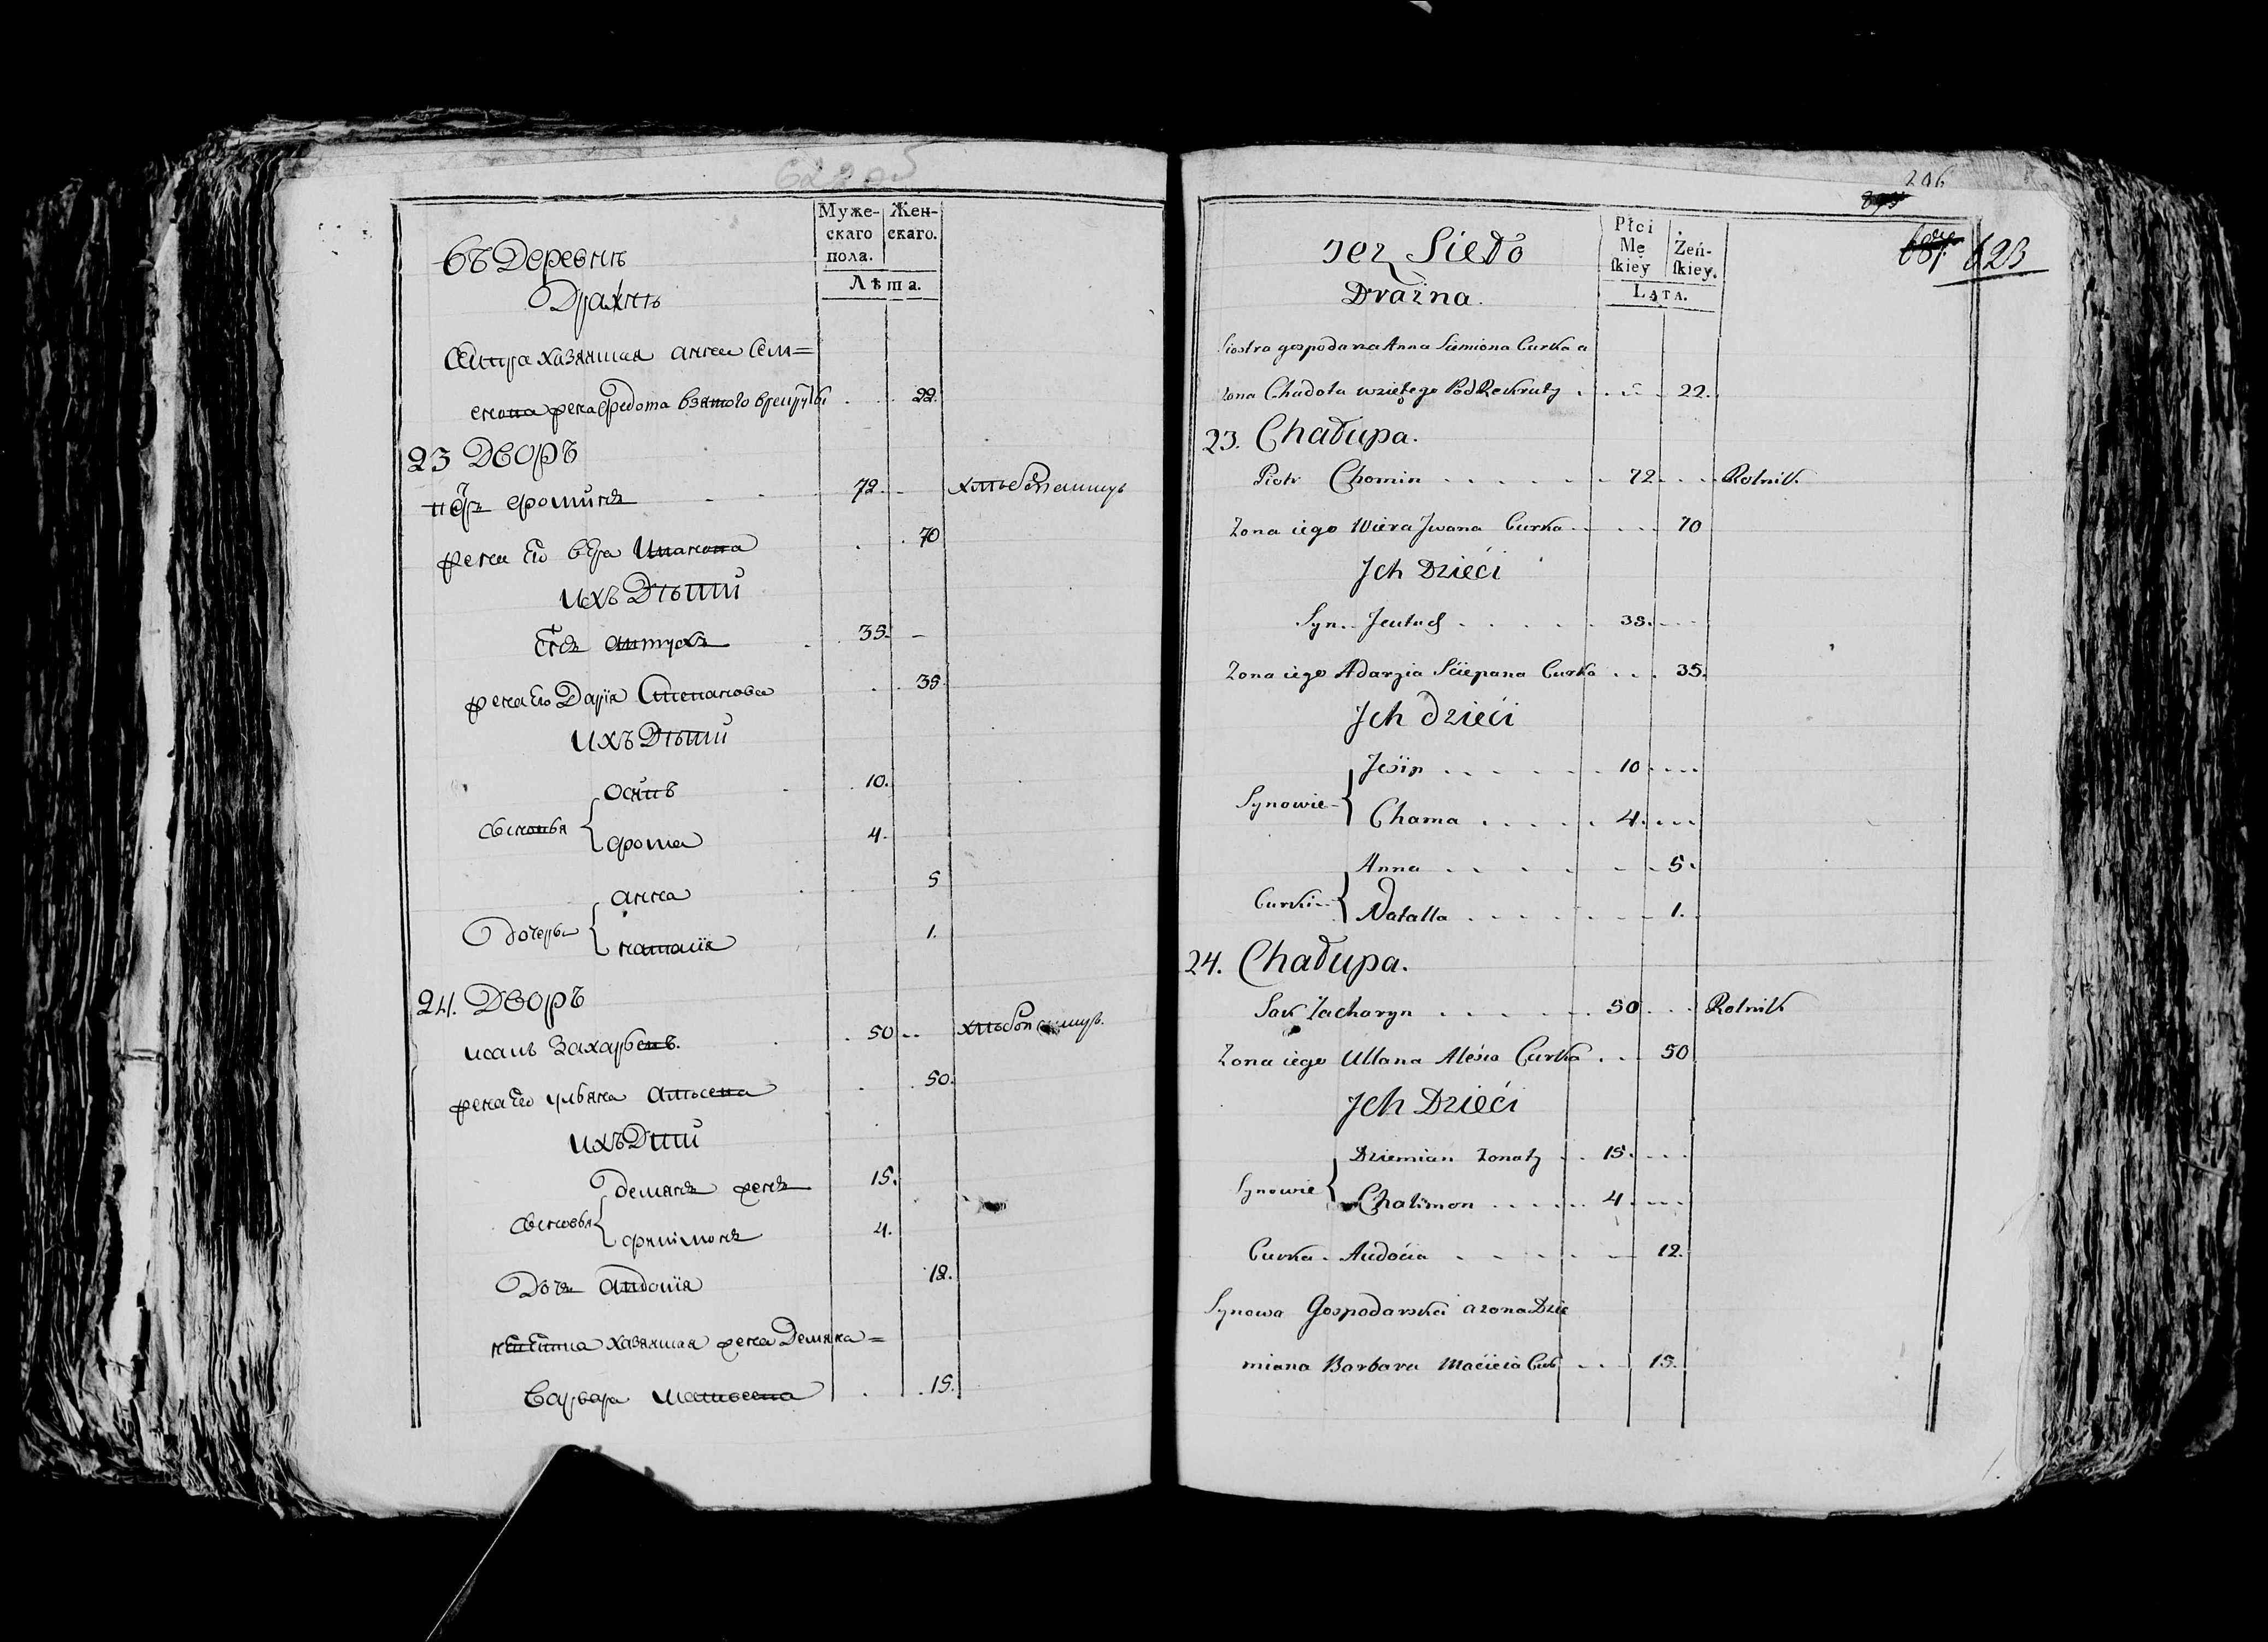 622 об
Муже-
скаго
пола.
Жен-
скаго.
Лѣта.
въ Деревнѣ
Дражнѣ
Сестра хазяиная анна Сем=
енова жена федота взятого врекруты . . 22.
23 Дворъ
петръ фоминъ . . 72. хлѣбопашецъ
жена его вера Иванова . . 70
Ихъ Дѣти
Сынъ антухъ . 35.
жена его Дарія Степанова . . 35.
Ихъ Дѣти
Сыновья
осипъ . 10.
фома 4.
Дочеры
анна . 5
наталія 1.
24. Дворъ
исакъ Захарьевъ. . 50 хлѣбопашецъ.
жена его ульяна алисеева . . 50.
ихъ Дети
Сыновья
демянъ женатъ 15.
филимонъ 4.
Дочь авдотія 12.
невестка хазяиная жена Демяна=
Варвара матвеева . . 15.
206
623
Jez Sieło
Drażna.
Płci
Mę
ſkiey
Żeń-
ſkiey.
LATA.
Siostra gospodarza Anna Siemiona Curka a
żona Chadota wziętego Pod Rekruty . . . 22.
23. Chałupa.
Piotr Chomin . . . . . . 72. . . . Rolnik.
Żona iego Wiera Jwana Curka . . . . 70
Jch Dzieći
Syn. . Jeutuch . . . . . 35. . . .
Żona iego Adarzia Sciepana Curka . . . 35.
Jch dzieći
Synowie
Jesip . . . . . . 10 . . . .
Chama . . . . . 4. . . .
Curki
Anna . . . . . . 5.
Natalla . . . . . . 1.
24. Chałupa.
Sak Zacharyn . . . . . . 50 . . . Rolnik
Żona iego Ullana Alesia Curka . . . 50
Jch Dzieći
Synowie
Dziemian żonaty . . 15. . . .
Chalimon . . . . . 4 . . . .
Curka. Audocia . . . . . 12.
Synowa Gospodarska a żona Dzie
miana Barbara Macieia Cur . . . 15.